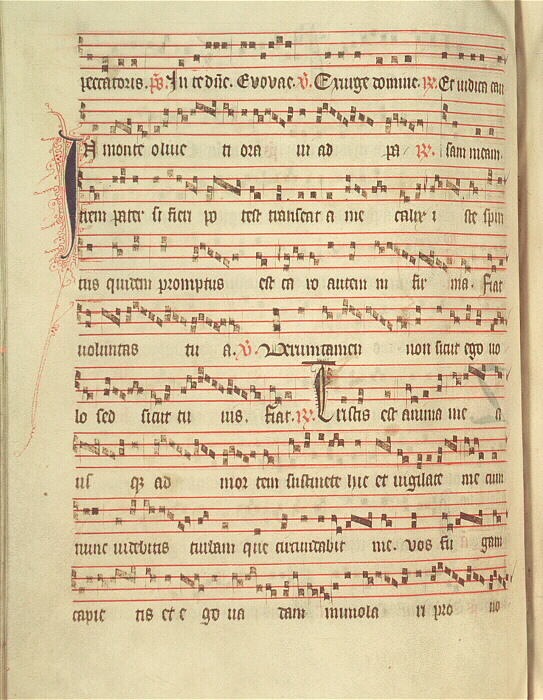 peccatoris. p̄s. In te dn̄e. Evovae. v̄. Exurge domine. R̄. Et iudica cau
In monte oliue ti ora ui ad pa R̄. sam meam.
trem pater si fieri po test transeat a me calix i ste spiri
tus quidem promptus est ca ro autem in fir ma. Fiat
uoluntas tu a. v̄. Veruntamen non sicut ego uo
lo sed sicut tu uis. Fiat. R̄. Tristis est anima me a
us q3 ad mor tem sustinete hic et uigilate me cum
nunc uidebitis turbam que circumdabit me. vos fu gam
capie tis et e go ua dam immola ri pro uo